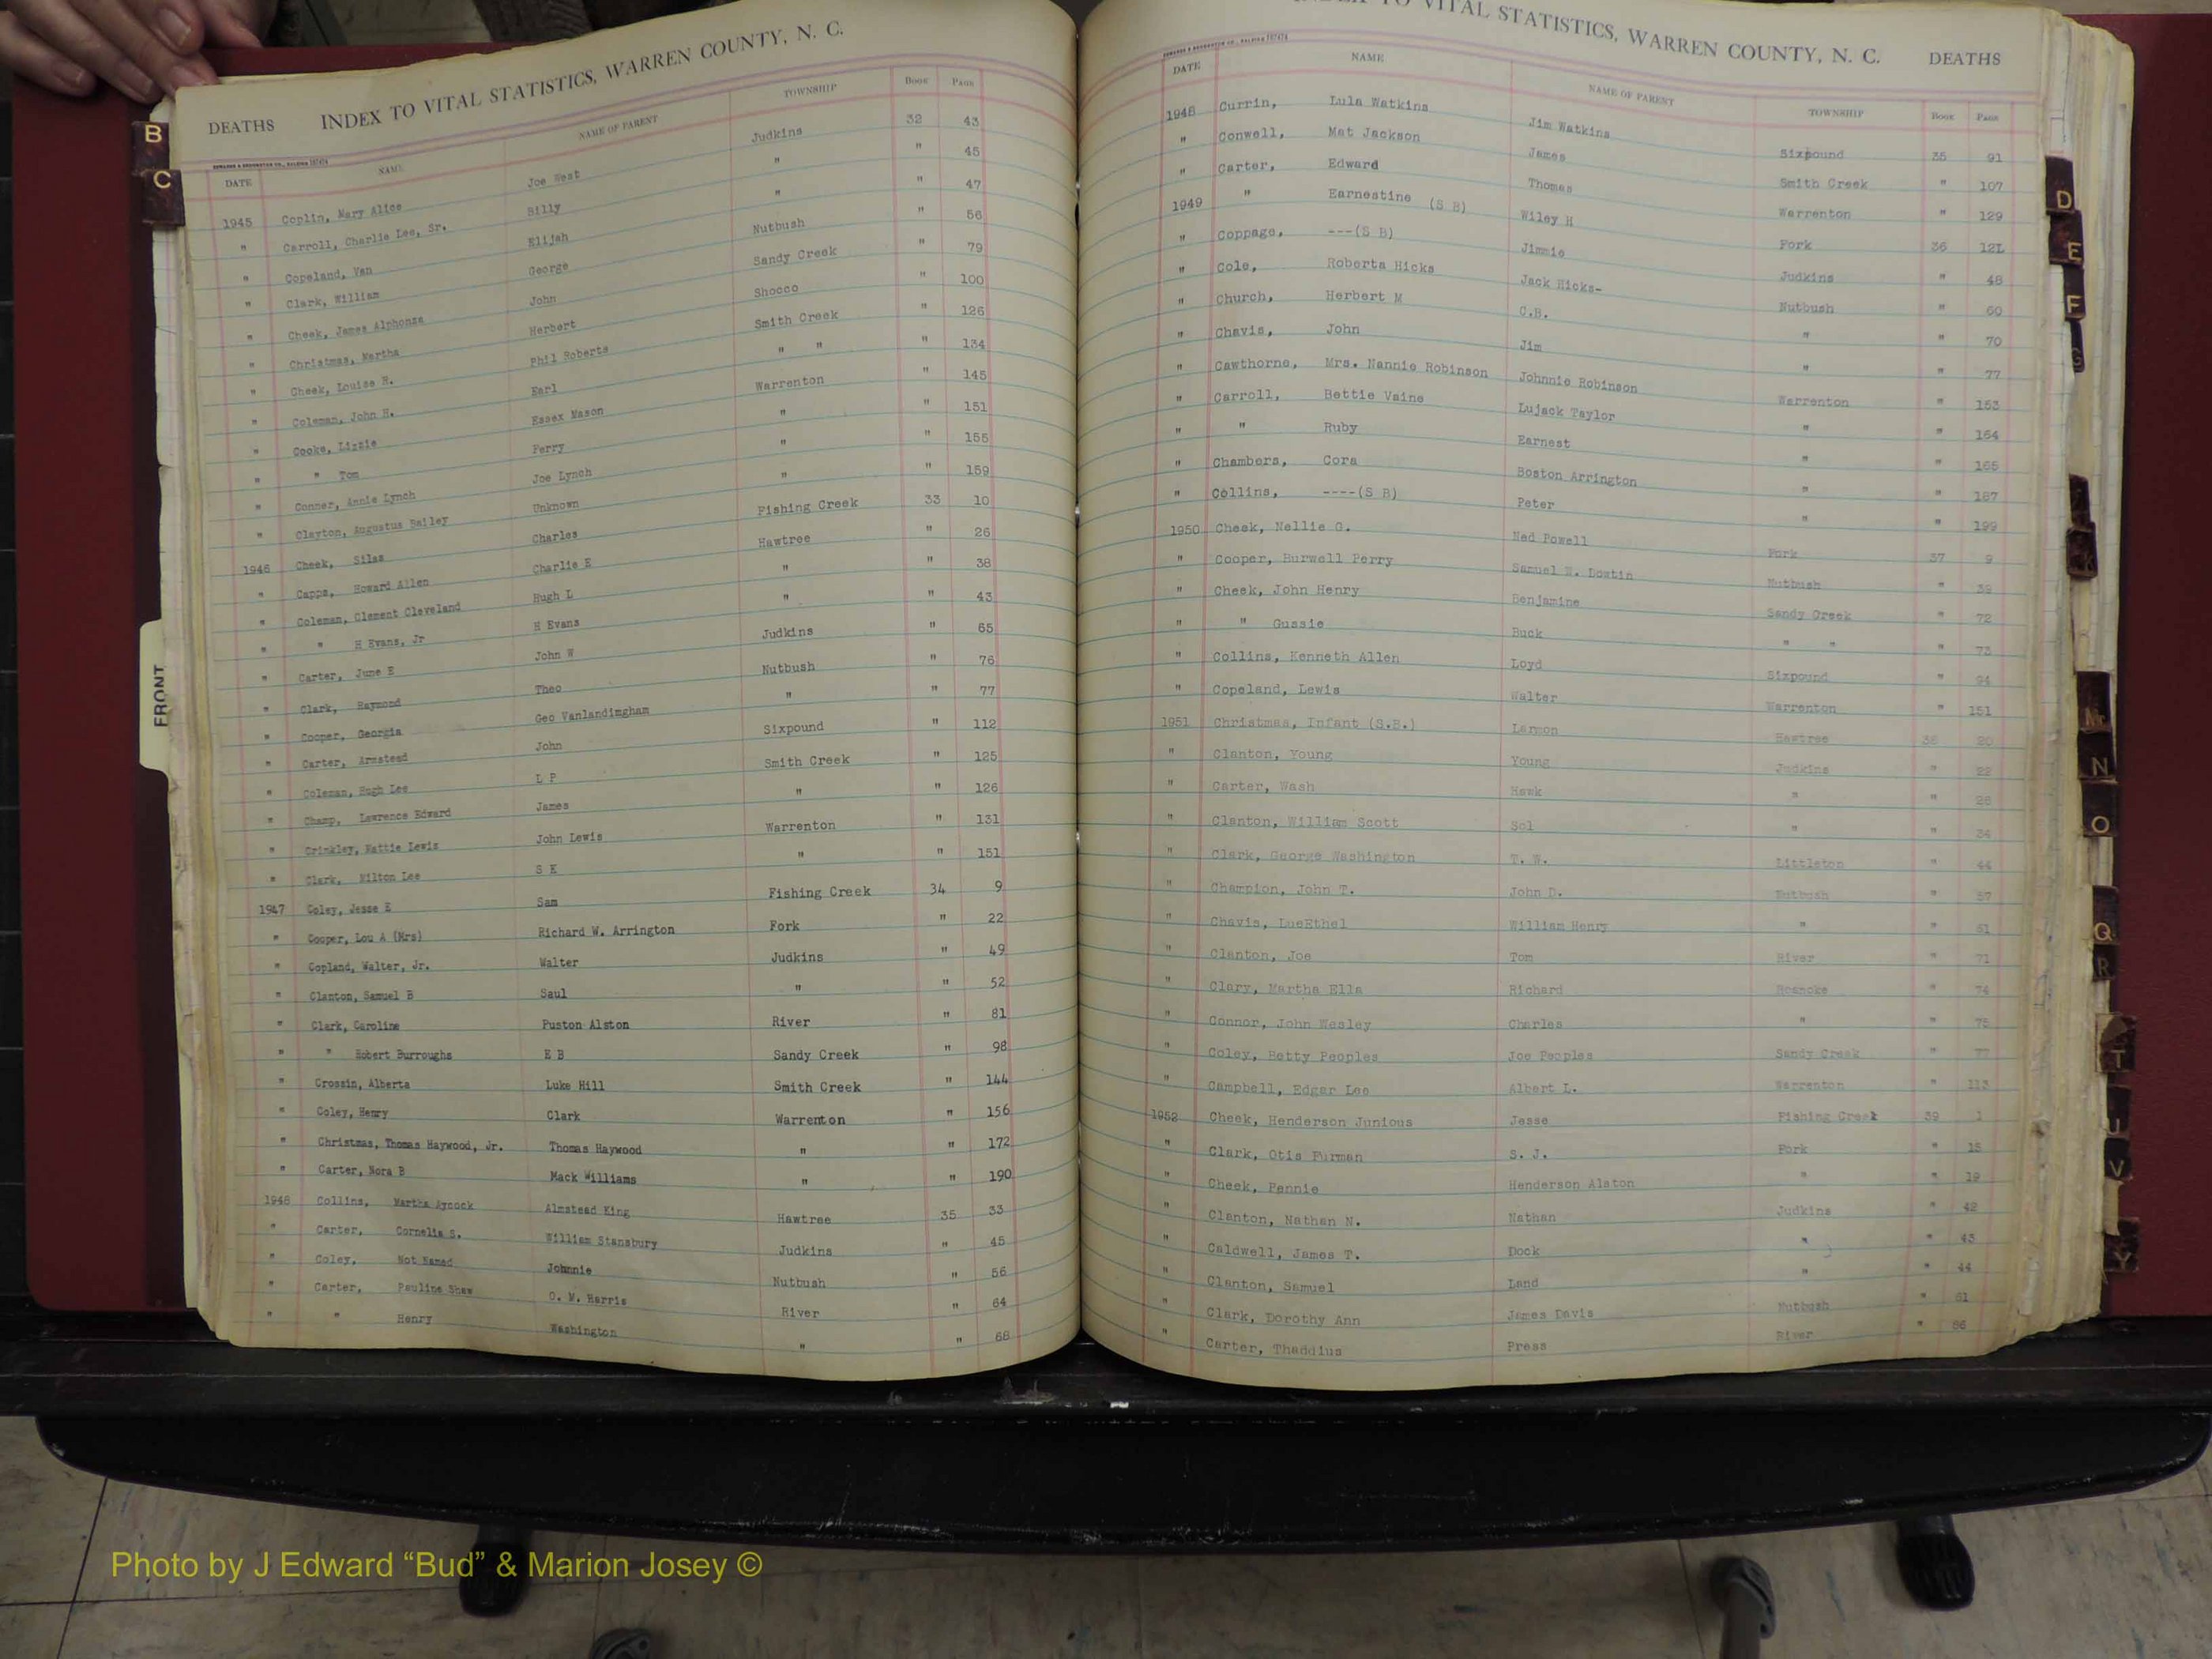 DEATHS INDEX TO VITAL STATISTICS, WARREN COUNTY, N. C.
DATE NAME NAME OF PARENT TOWNSHIP BOOK PAGE
1945 Coplin, Mary Alice Joe West Judkins 32 43
" Carroll, Charlie Lee, Sr. Billy " " 45
" Copeland, Van Elijah " " 47
" Clark, William George Nutbush " 56
" Cheek, James Alphonza John Sandy Creek " 79
" Christmas, Martha Herbert Shocco " 100
" Cheek, Louise H. Phil Roberts Smith Creek " 126
" Coleman, John H. Earl " " " 134
" Cooke, Lizzie Essex Mason Warrenton " 145
" " Tom Perry " " 151
" Conner, Annie Lynch Joe Lynch " " 155
" Clayton, Augustus Bailey Unknown " " 159
1946 Cheek, Silas Charles Fishing Creek 33 10
" Capps, Howard Allen Charlie E Hawtree " 26
" Coleman, Clement Cleveland Hugh L " " 38
" " H Evans, Jr H Evans " " 43
" Carter, June E John W Judkins " 65
" Clark, Raymond Theo Nutbush " 76
" Cooper, Georgia Geo Vanlandingham " " 77
" Carter, Armstead John Sixpound " 112
" Coleman, Hugh Lee L P Smith Creek " 125
" Champ, Lawrence Edward James " " 126
" Crinkley, Mattie Lewis John Lewis Warrenton " 131
" Clark, Milton Lee S E " " 151
1947 Coley, Jesse E Sam Fishing Creek 34 9
" Cooper, Lou A (Mrs) Richard W. Arrington Fork " 22
" Copland, Walter, Jr. Walter Judkins " 49
" Clanton, Samuel B Saul " " 52
" Clark, Caroline Puston Alston River " 81
" " Robert Burroughs E B Sandy Creek " 98
" Crossin, Alberta Luke Hill Smith Creek " 144
" Coley, Henry Clark Warrenton " 156
" Christmas, Thomas Haywood, Jr. Thomas Haywood " " 172
" Carter, Nora B Mack Williams " " 190
1948 Collins, Martha Aycock Almstead King Hawtree 35 33
" Carter, Cornelia S. William Stansbury Judkins " 45
" Coley, Not Named Johnnie Nutbush " 56
" Carter, Pauline Shaw O. W. Harris River " 64
" " Henry Washington " " 68
INDEX TO VITAL STATISTICS, WARREN COUNTY, N. C. DEATHS
DATE NAME NAME OF PARENT TOWNSHIP BOOK PAGE
1948 Currin, Lula Watkins Jim Watkins Sixpound 35 91
" Conwell, Mat Jackson James Smith Creek " 107
" Carter, Edward Thomas Warrenton " 129
1949 " Earnestine (S B) Wiley H Fork 36 12L
" Coppage, ---(S B) Jimmie Judkins " 48
" Cole, Roberta Hicks Jack Hicks- Nutbush " 60
" Church, Herbert M C.B. " " 70
" Chavis, John Jim " " 77
" Cawthorne, Mrs. Nannie Robinson Johnnie Robinson Warrenton " 153
" Carroll, Bettie Vaine Lujack Taylor " " 164
" " Ruby Earnest " " 165
" Chambers, Cora Boston Arrington " " 187
" Collins, ----(S B) Peter " " 199
1950 Cheek, Nellie G. Ned Powell Fork 37 9
" Cooper, Burwell Perry Samuel W. Dowtin Nutbush " 39
" Cheek, John Henry Benjamine Sandy Creek " 72
" " Gussie Buck " " " 73
" Collins, Kenneth Allen Loyd Sixpound " 94
" Copeland, Lewis Walter Warrenton " 151
1951 Christmas, Infant (S.B.) Lermon Hawtree 38 20
" Clanton, Young Young Judkins " 22
" Carter, Wash Hawk " " 28
" Clanton, William Scott Sol " " 34
" Clark, George Washington T. W. Littleton " 44
" Champion, John T. John D. Nutbush " 57
" Chavis, LueEthel William Henry " " 61
" Clanton, Joe Tom River " 71
" Clary, Martha Ella Richard Roanoke " 74
" Connor, John Wesley Charles " " 75
" Coley, Betty Peoples Joe Peoples Sandy Creek " 77
" Campbell, Edgar Lee Albert L. Warrenton " 113
1952 Cheek, Henderson Junious Jesse Fishing Creek 39 1
" Clark, Otis Furman S. J. Fork " 15
" Cheek, Pennie Henderson Alston " " 19
" Clanton, Nathan N. Nathan Judkins " 42
" Caldwell, James T. Dock " " 43
" Clanton, Samuel Land " " 44
" Clark, Dorothy Ann James Davis Nutbush " 61
" Carter, Thaddius Press River " 86
B
C
FRONT
D
E
F
G
N
O
Q
R
T
U
V
Y
Photo by J Edward “Bud” & Marion Josey ©